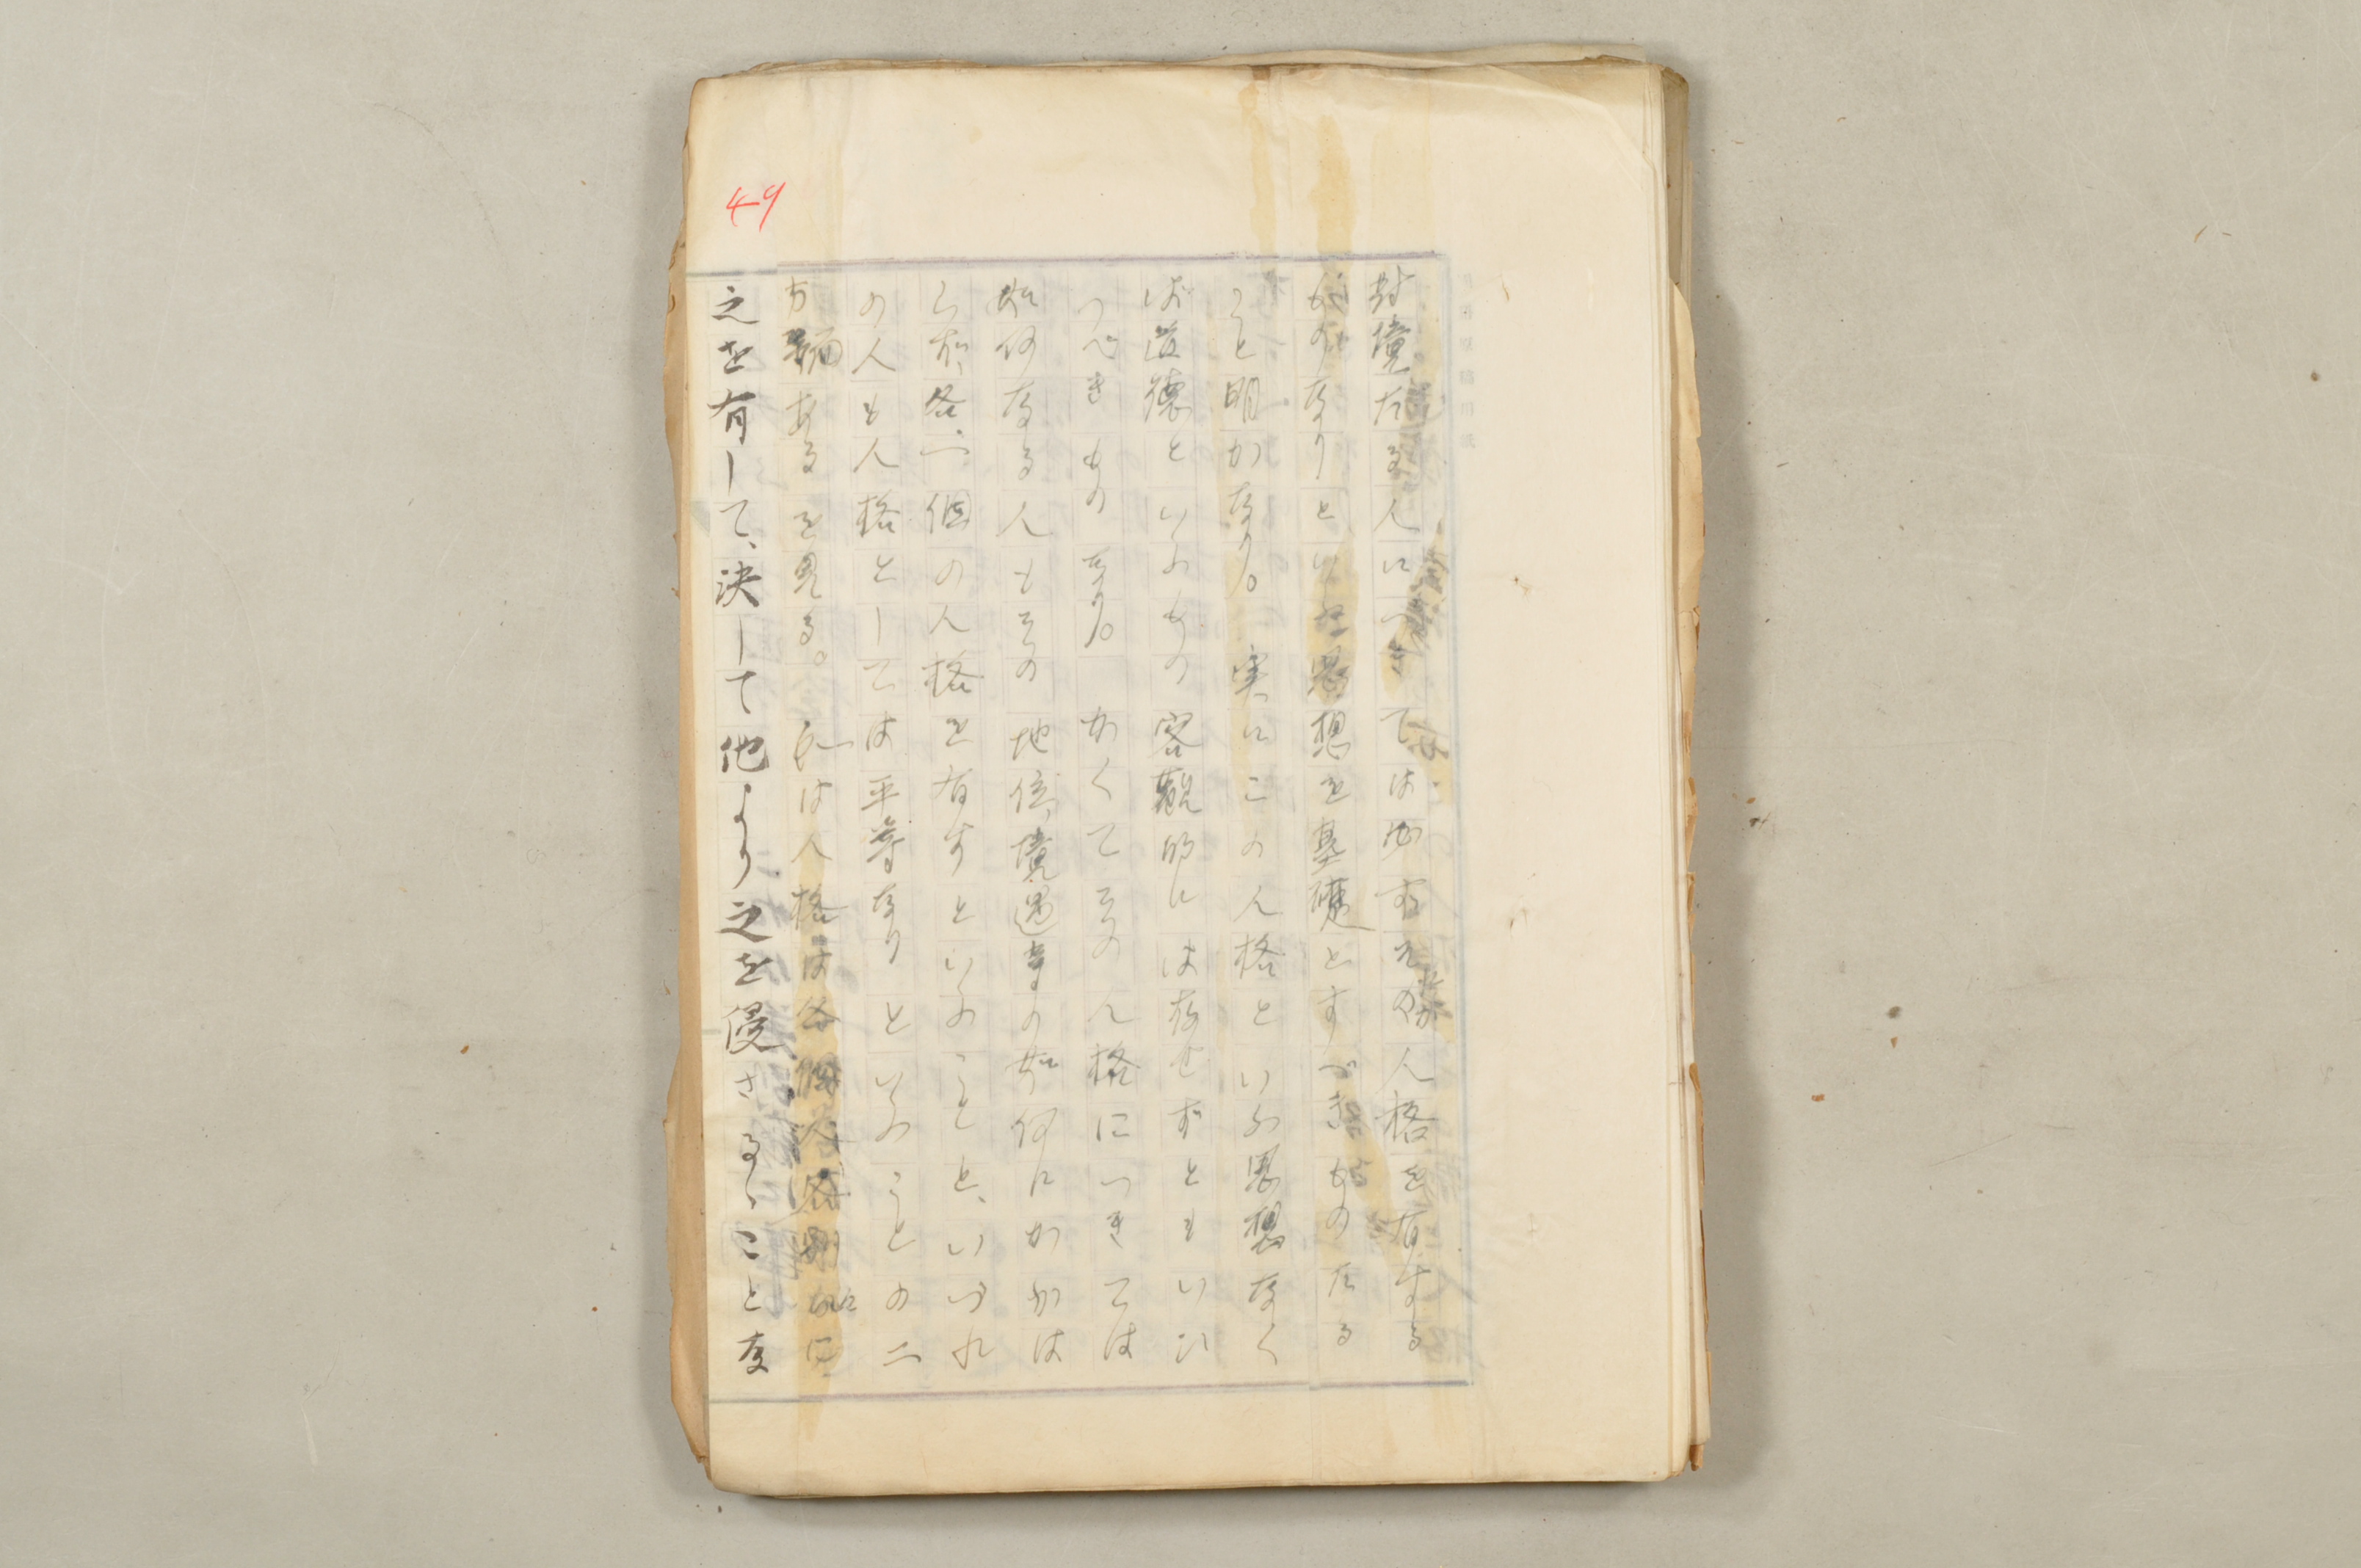 49
對境たる人につきては必ずその人格を有する
ものなりといふ思想を基礎とすべきものたる
こと明かなり。実にこの人格といふ思想なく
ば道德といふもの客觀的には存せずともいひ
つべきものなり。かくてその人格につきては
如何なる人もその地位、境遇等の如何にかかは
らず、各、一個の人格を有すといふことと、いづれ
の人も人格としては平等なりといふことの二
方面あるを見る。即ちは人格は各個人各別に
之を有して、決して他より之を侵さるゝこと友